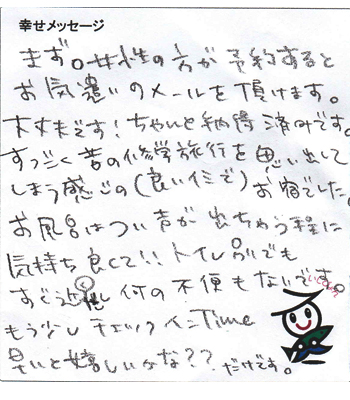 幸せメッセージ
まず。女性の方が予約すると
お気遣いのメールを頂けます。
大丈夫です！ちゃんと納得済みです。
すっごく昔の修学旅行を思い出して
しまう感じの(良いイミで)お宿でした。
お風呂はつい声が出ちゃう程に
気持ち良くて!!トイレ別でも
すぐ近くだし何の不便もないです。
もう少しチェックインTime
早いと嬉しいかな？？だけです。